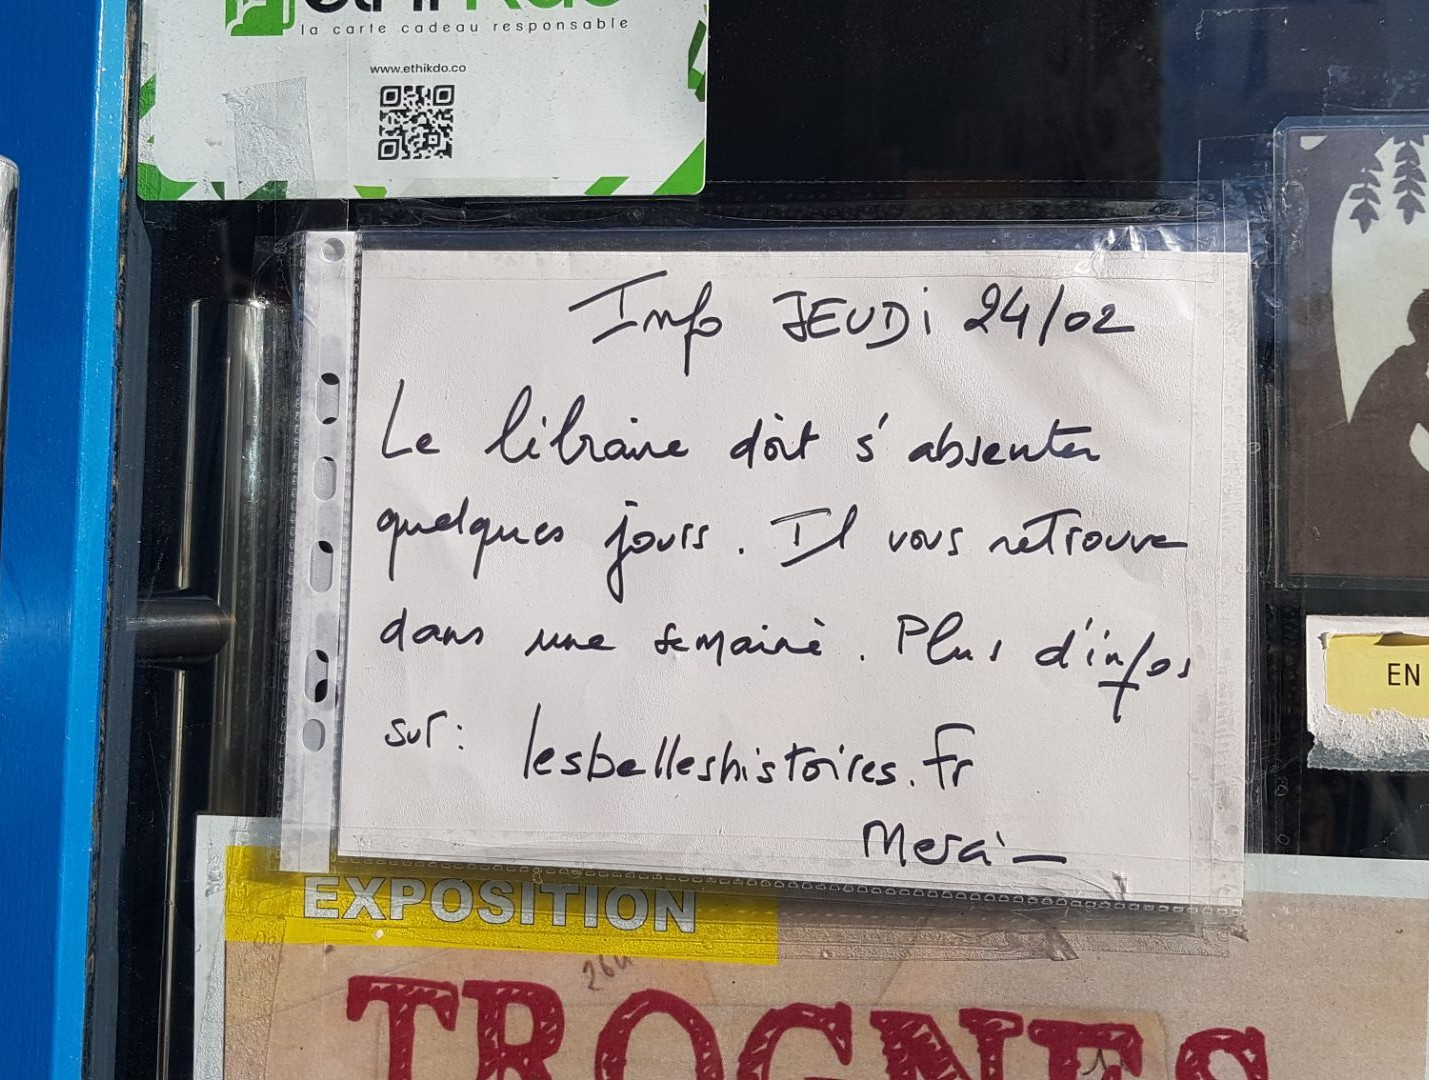 la carte cadeau responsable
www.ethikdo.co
Info JEUDi 24/02
Le libraire doit s'absenter
quelques jours. Il vous retrouve
dans une semaine. Plus d'infos
sur: lesbelleshistoires.fr
Merci
EN
EXPOSITION
264
TROGNES